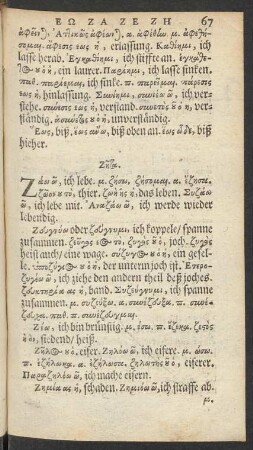 ΕΩ ΖΑ ΖΕ ΖΗ 67
ἀφεὶς). Ἀττικῶς ἀφέων). α. ἀφείθω. μ. ἀφεθή-
σομαι. ἄφεσις εως ἡ, erlassung. Καθίημι, ich
lasse herab. Ἐγκαθίημι, ich stiffte an. ἐγκάθε-
τος ου ὁ ἡ, ein laurer. Παρίημι, ich lasse sincken.
παθ. παρίεμαι, ich sincke. π. παρεῖμαι. πάρεσις
εως ἡ, hinlassung. Συνίημι, συνιέω ῶ, ich ver-
stehe. σύνεσις εως ἡ, verstand. συνετὸς οῦ ὁ, ver-
ständig. ἀσύνετος ου ὁ ἡ, unverständig.
Ἕως, biß, ἕως ἄνω, biß oben an. ἕως ὧδε, biß
hieher.
Ζῆτα.
Ζάω ῶ, ich lebe. μ. ζήσω. ζήσομαι. α. ἔζησα.
ζῶον ου τὸ, thier. ζωὴ ῆς ἡ, das leben. Συζάω
ῶ, ich lebe mit. Ἀναζάω ῶ, ich werde wieder
lebendig.
Ζευγνύω oder ζεύγνυμι, ich koppele/ spanne
zusammen. ζεῦγος εος τὸ, ζυγὸς οῦ ὁ, joch. ζυγὸς
heist auch/ eine wage. σύζυγος ου ὁ ἡ, ein gesel-
le. ὑποζύγιος ου ὁ ἡ, der unterm joch ist. Ἑτερο-
ζυγέω ῶ, ich ziehe den andern theil deß joches.
ζευκτηρία ας ἡ, band. Συζεύγνυμι, ich spanne
zusammen. μ. συζεύξω. α. συνέζευξα. π. συνέ-
ζευχα. παθ. π. συνέζευγμαι.
Ζέω, ich bin brünstig. μ. έσω. π. ἔζεκα. ζεστὸς
οῦ, siedend/ heiß.
Ζῆλος ου ὁ, eifer. Ζηλόω ῶ, ich eifere. μ. ώσω.
π. ἐζήλωκα. α. ἐζήλωσα. ζηλωτὴς οῦ ὁ, eiferer.
Παραζηλόω ῶ, ich mache eifern.
Ζημία ας ἡ, schaden. Ζημιόω ῶ, ich straffe ab.
μ.